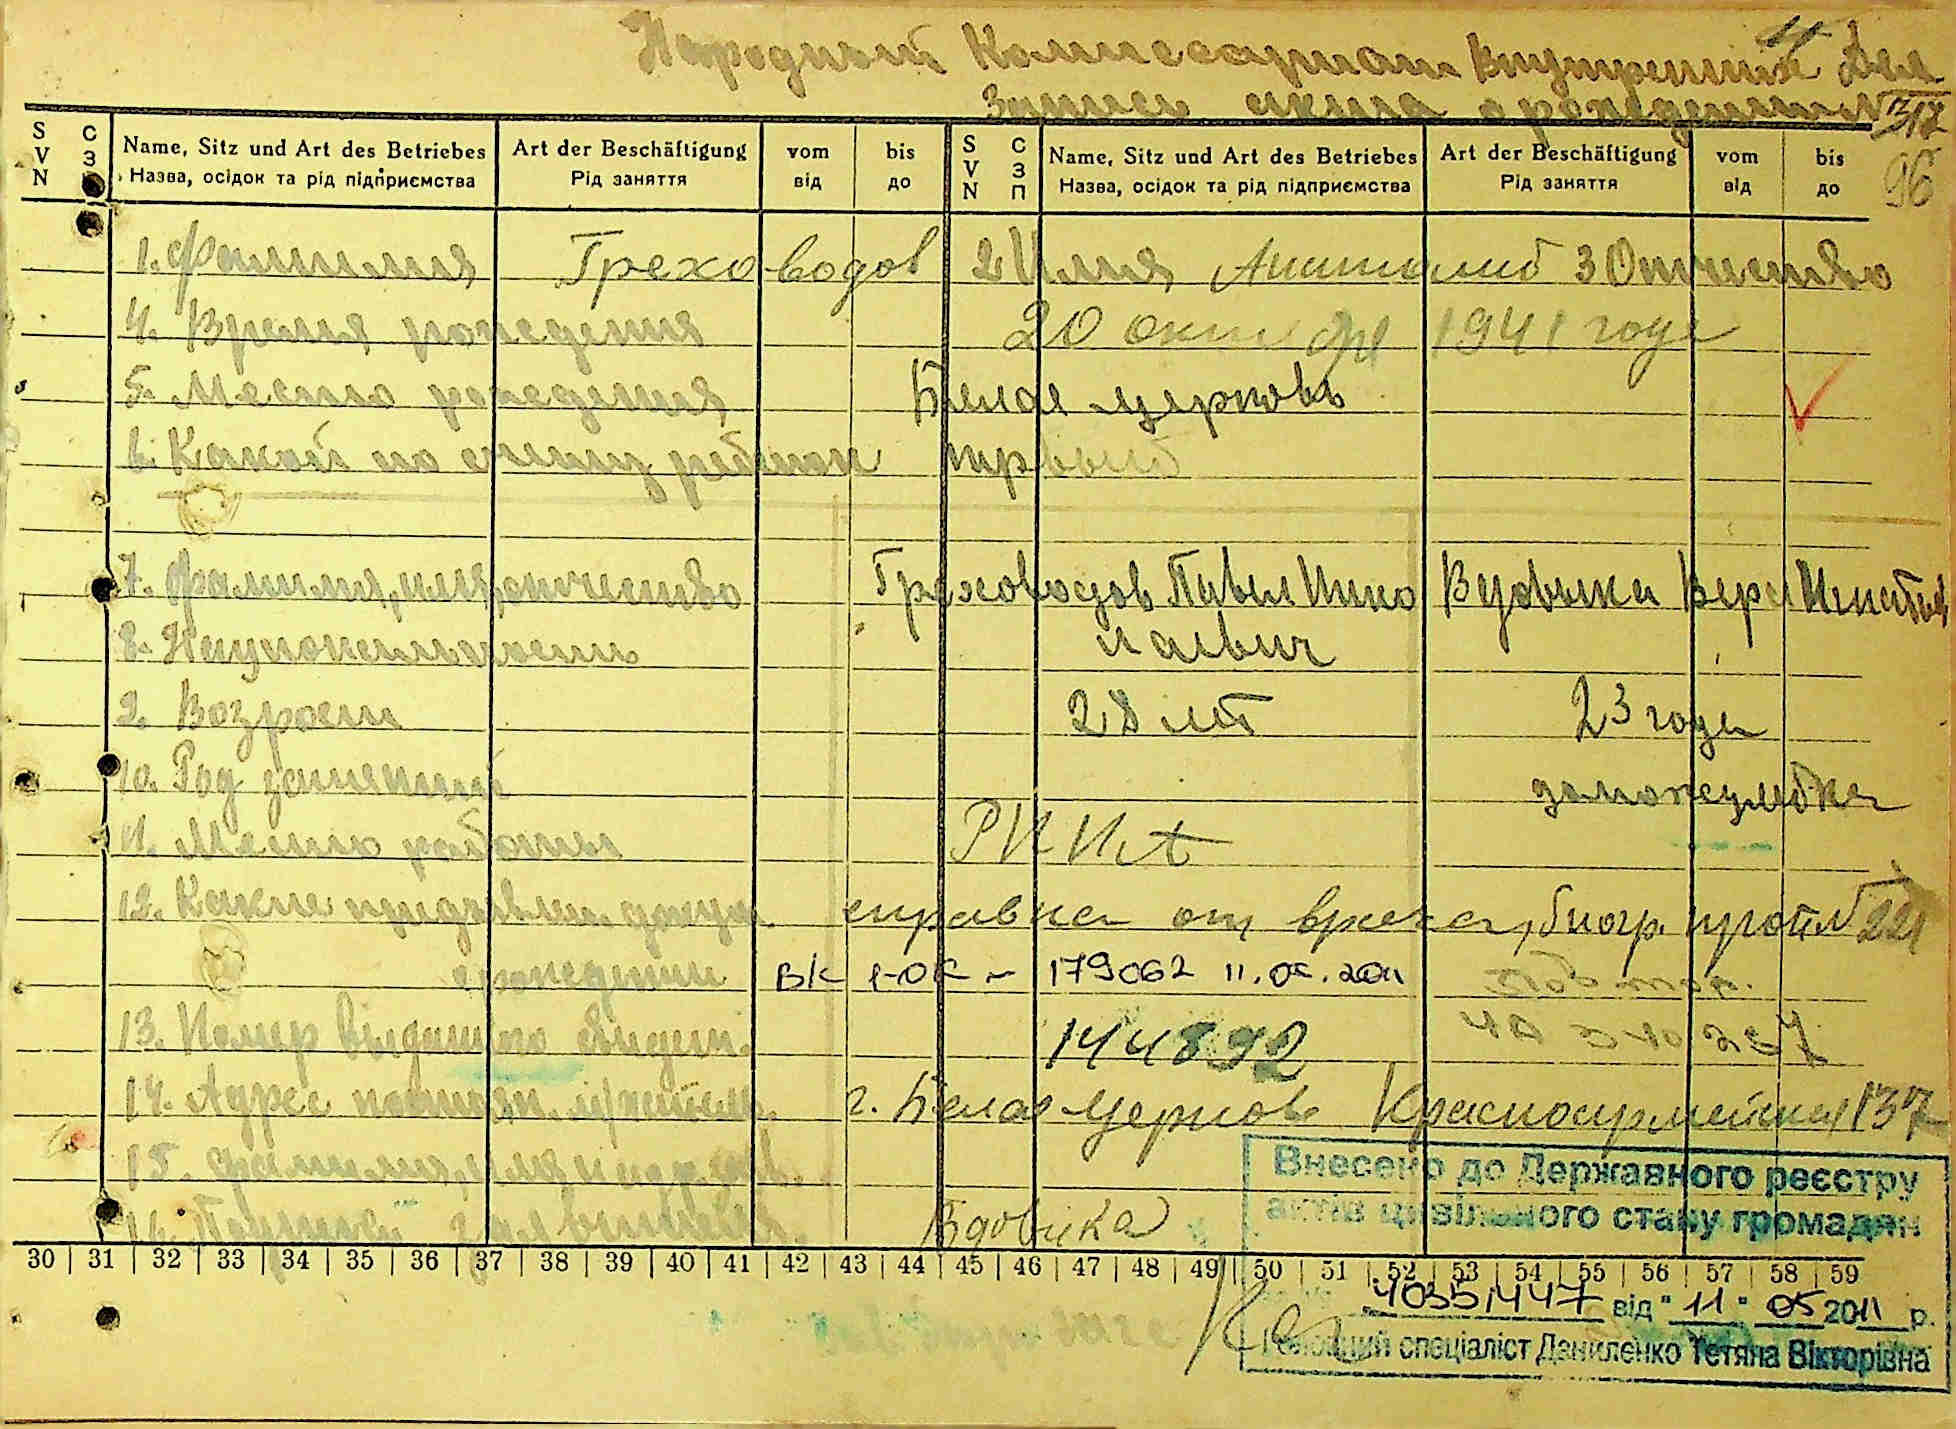 Народный Комиссариат Внутренних Дел
Запись акта о рождении № 317
96
SVN СЗП Name, Sitz und Art des Betriebes Art der Beschäftigung vom bis SVN СЗП Name, Sitz und Art des Betriebes Art der Beschäftigung vom bis
Назва, осідок та рід підприємства Рід заняття від до Назва, осідок та рід підприємства Рід заняття від до
1. Фамилия Греховодов 2 Имя Анатолий 3 Отчество
4. Время рождения 20 октября 1941 года
5. Место рождения Белая церковь
6. Какой по счету ребенок первый
7. Фамилия, имя, отчество Греховодов Павел Нико Вдовика Вера
лаевич
8. Национальность
9. Возраст 28 лет 23 года
10. Род занятий домохозяйка
11. Место работы
12. Какие представлен. докум. справка от врача,
о рождении 179062 11.05.2011 Повтор.
13. Номер выданного свидет. 144892
14. Адрес постоян. г. Белая Церковь Красноармейская 137
15. Фамилия, имя и адр. заяв.
16. Вдовика
Внесено до Державного реєстру
актів цивільного стану громадян
30 31 32 33 34 35 36 37 38 39 40 41 42 43 44 45 46 47 48 49 50 51 52 53 54 55 56 57 58 59
від "11" 05 2011 р.
Головний спеціаліст Даниленко Тетяна Вікторівна